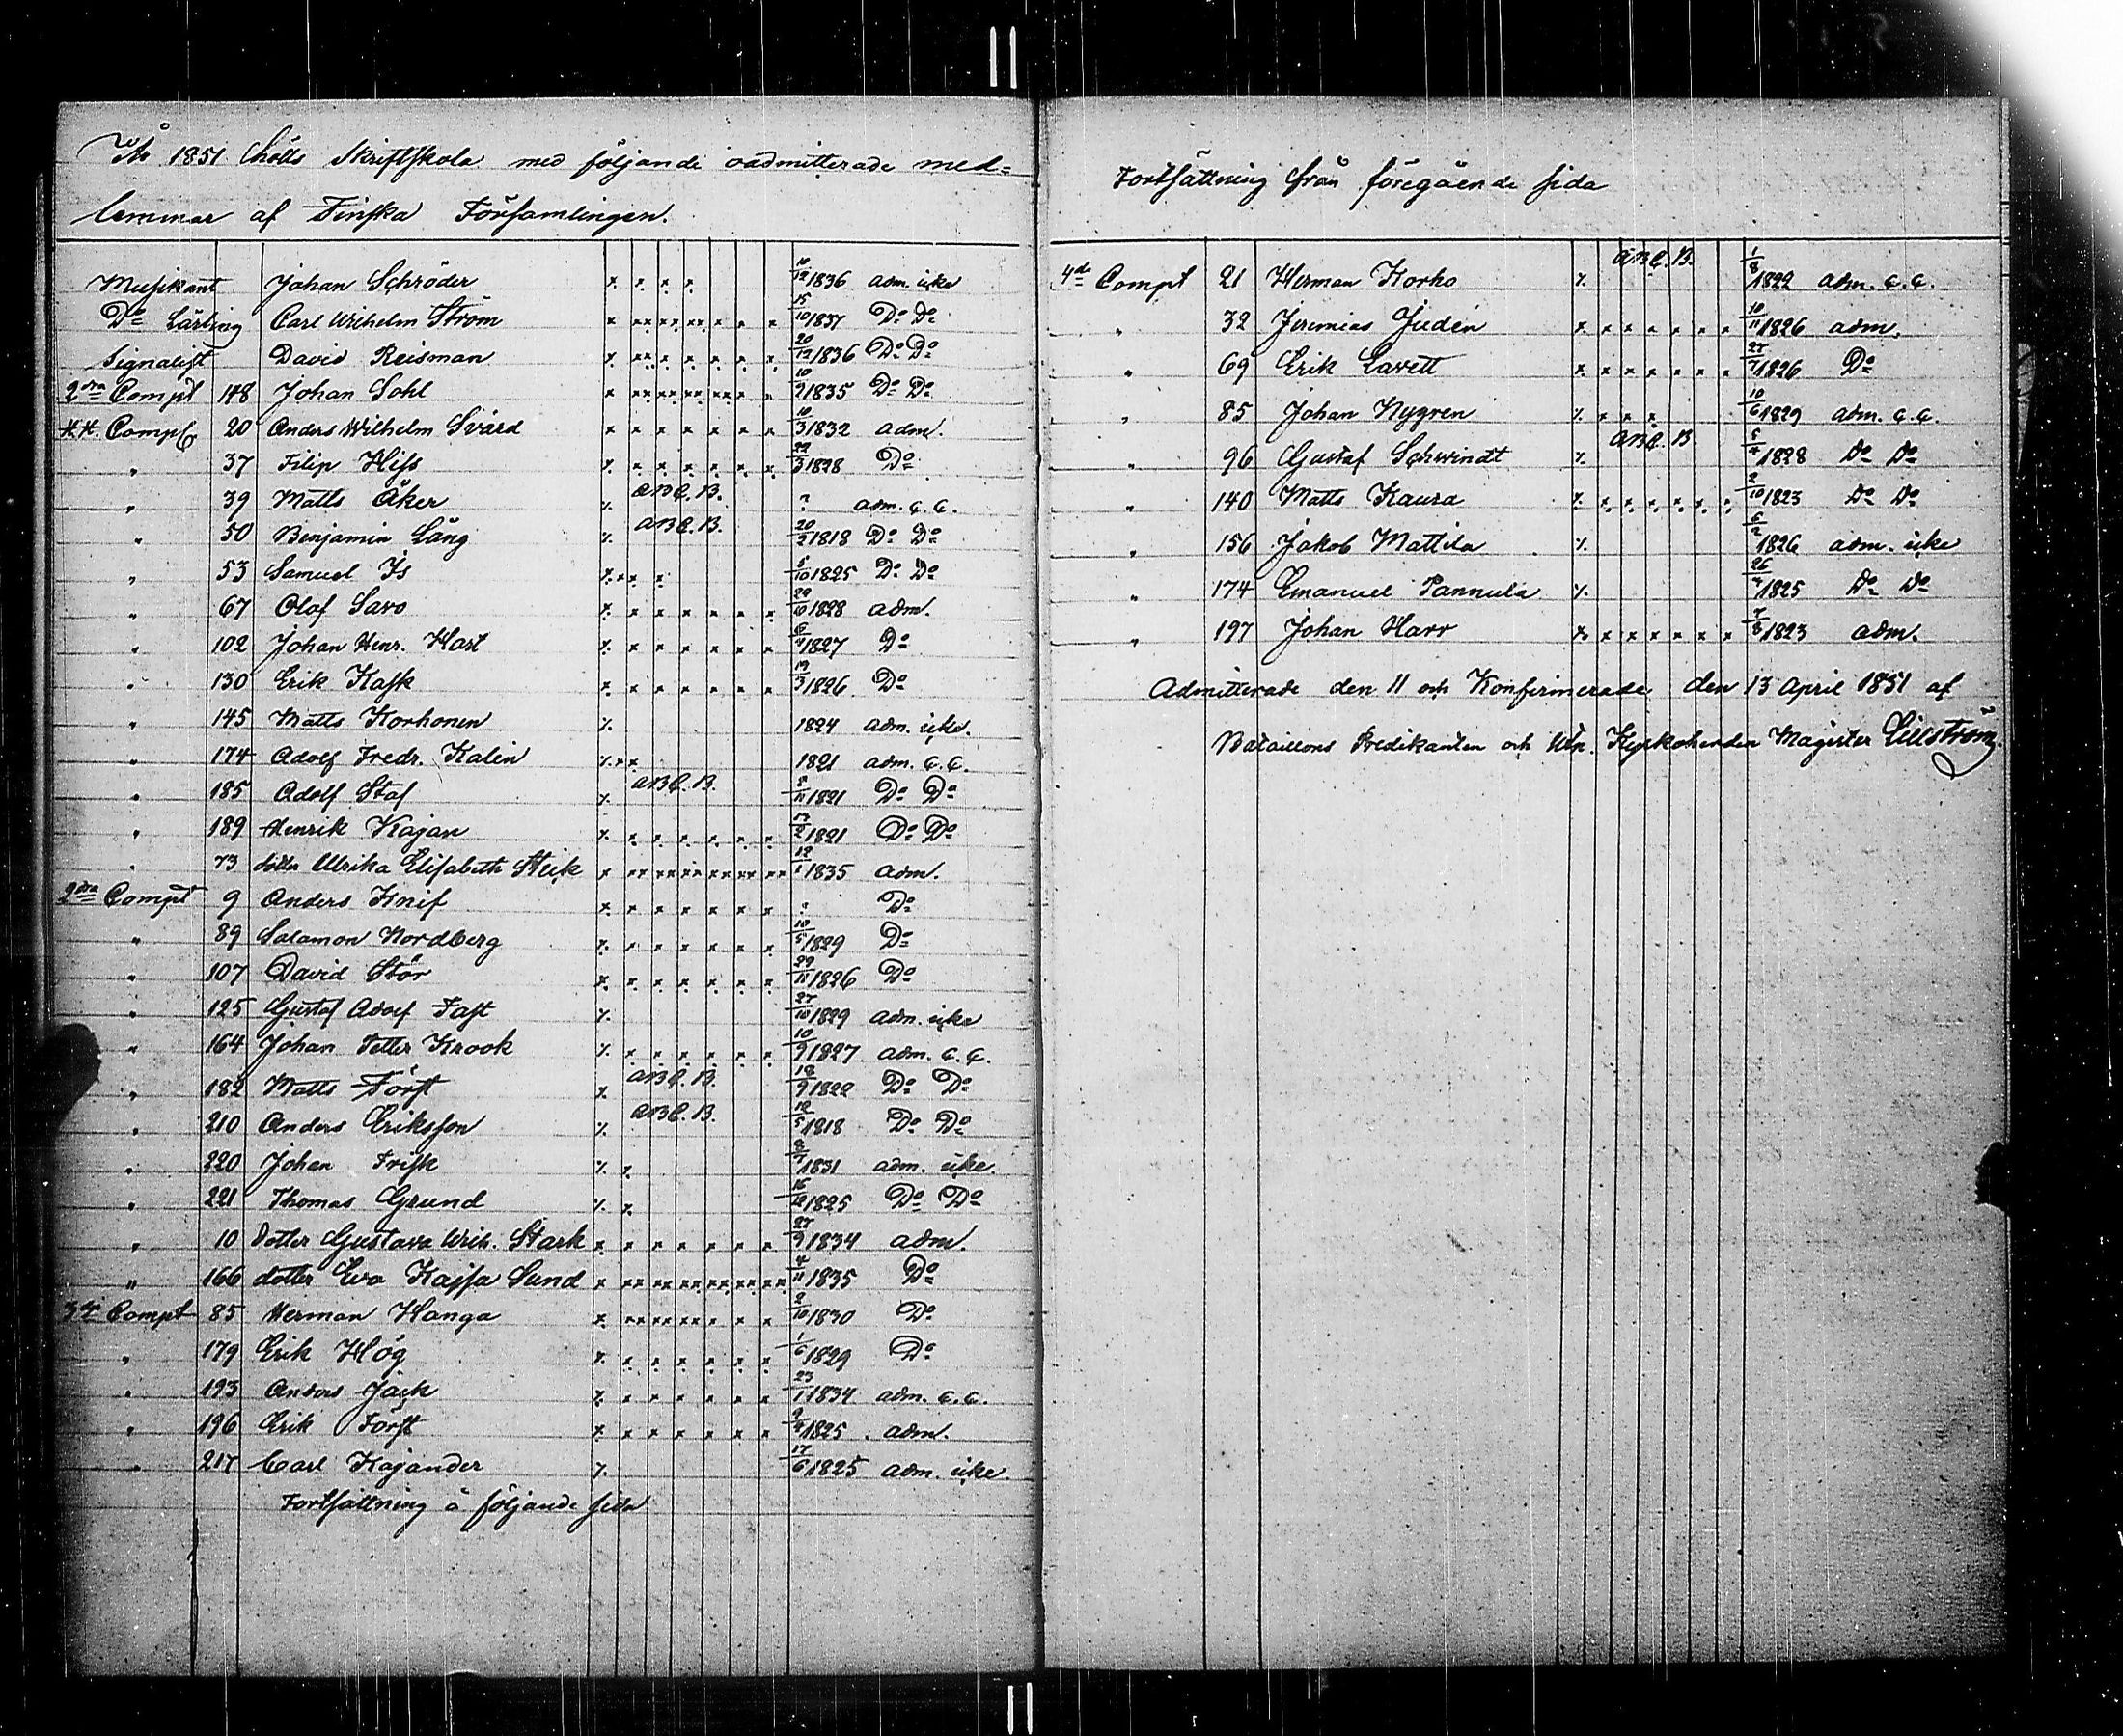 År 1851 hölts Skriftskola med följande oadmitterade med=
lemmar af Finska Församlingen.
Musikant Johan Schröder x x x x 10/12 1836 adm. icke
Do Lärling Carl Wilhelm Ström x xx xx xx x x x 15/10 1837 Do Do
Signalist David Reisman x xx x x x x x 20/12 1836 Do Do
2dra Compt 148 Johan Sohl x xx xx xx xx x x 10/9 1835 Do Do
Compt 20 Anders Wilhelm Svärd x x x x x x x 10/3 1832 adm.
" 37 Filip Hiss x x x x x x x 22/3 1828 Do
" 39 Matts Åker x ABC. B. ? adm. c. c.
" 50 Benjamin Lång x ABC. B. 20/2 1818 Do Do
" 53 Samuel Is x x x x 5/10 1825 Do Do
" 67 Olof Savo x x x x x x x 29/10 1828 adm.
" 102 Johan Henr. Hart x x x x x x x 6/4 1827 Do
" 130 Erik Kask x x x x x x x 19/3 1826 Do
" 145 Matts Korhonen x 1824 adm. icke.
" 174 Adolf Fredr. Kalin x x x 1821 adm. c. c.
" 185 Adolf Staf x ABC. B. 8/11 1821 Do Do
" 189 Henrik Kajan x x x x x x x 17/2 1821 Do Do
" 73 dotter Ulrika Elisabeth Steik x xx xx xx xx xx xx 12/1 1835 adm.
2dra Compt 9 Anders Knif x x x x x x x ? Do
" 89 Salamon Nordberg x x x x x x x 10/5 1829 Do
" 107 David Stör x x x x x x x 29/11 1826 Do
" 125 Gustaf Adolf Fast x 27/10 1829 adm. icke
" 164 Johan Petter Krook x x x x x x x 10/9 1827 adm. c. c.
" 182 Matts Först x ABC. B. 18/9 1822 Do Do
" 210 Anders Eriksson x ABC. B. 12/5 1818 Do Do
" 220 Johan Frisk x x 8/7 1831 adm. icke.
" 221 Thomas Grund x x 16/12 1825 Do Do
" 10 dotter Gustava Wilh. Stark x x x x x x x 27/9 1834 adm.
" 166 dotter Eva Kajsa Sund x xx xx xx xx xx xx 4/11 1835 Do
3dje Compt 85 Herman Hanga x xx xx xx x x x 2/10 1830 Do
" 179 Erik Hög x x x x x x x 1/6 1829 Do
" 193 Anders Jäck x x x x x x x 23/1 1834 adm. c. c.
" 196 Erik Först x x x x x x x 9/4 1825 adm.
" 217 Carl Kajander x 17/6 1825 adm. icke
Fortsättning å följande sida
Fortsättning från föregående sida
4de Compt 21 Herman Korho x ABC. B. 1/8 1822 adm. c. c.
" 32 Jeremias Judén x x x x x x x 10/11 1826 adm.
" 69 Erik Lavett x x x x x x x 27/7 1826 Do
" 85 Johan Nygren x x x x 10/6 1829 adm. c. c.
" 96 Gustaf Schwindt x ABC. B. 5/4 1828 Do Do
" 140 Matts Kaura x x x x x x x 2/10 1823 Do Do
" 156 Jakob Mattila x 6/2 1826 adm. icke
" 174 Emanuel Pannula x 26/4 1825 Do Do
" 197 Johan Harr x x x x x x x 7/3 1823 adm.
Admitterade den 11 och Konfirmerade den 13 April 1851 af
Bataillons Predikanten och Kyrkoherden Magister Lillström.